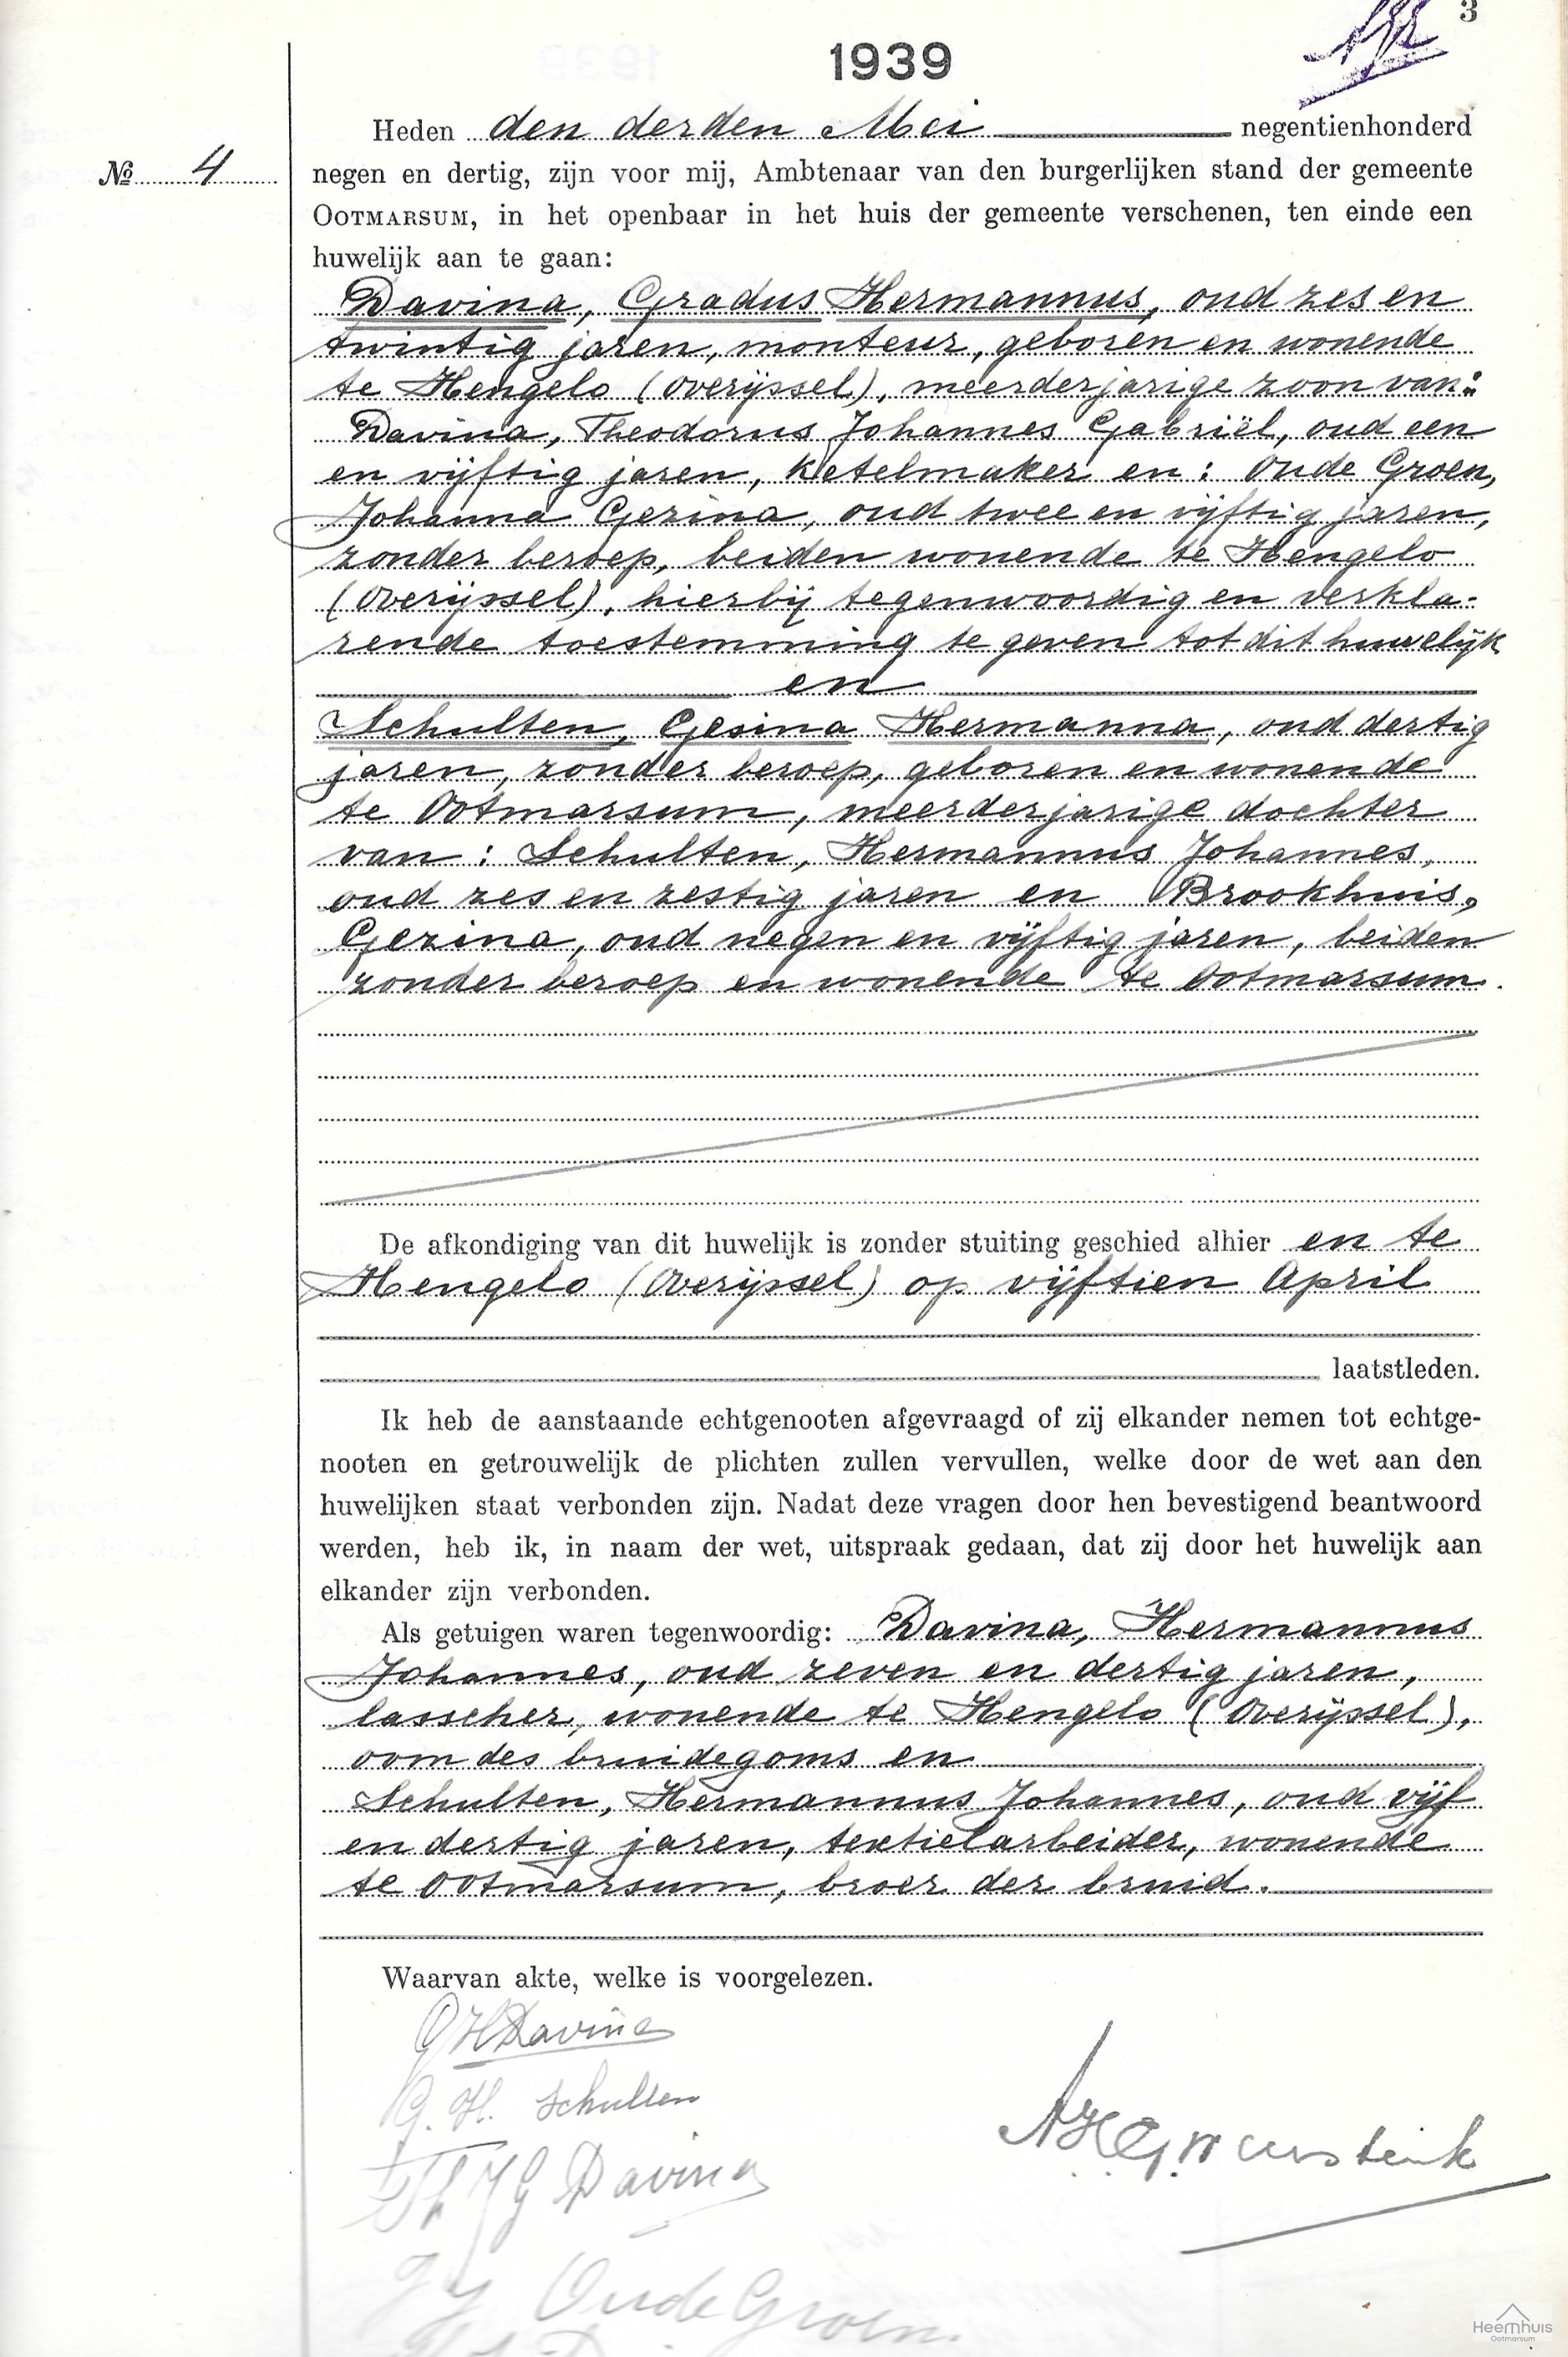 3
1939
Heden den derden Mei negentienhonderd
№ 4
negen en dertig, zijn voor mij, Ambtenaar van den burgerlijken stand der gemeente
OOTMARSUM, in het openbaar in het huis der gemeente verschenen, ten einde een
huwelijk aan te gaan:
Davina, Gradus Hermannus, oud zes en
twintig jaren, monteur, geboren en wonende
te Hengelo (Overijssel), meerderjarige zoon van:
Davina, Theodorus Johannes Gabriël, oud een
en vijftig jaren, ketelmaker en: Oude Groen,
Johanna Gezina, oud twee en vijftig jaren,
zonder beroep, beiden wonende te Hengelo
(Overijssel), hierbij tegenwoordig en verkla-
rende toestemming te geven tot dit huwelijk
en
Schulten, Gesina Hermanna, oud dertig
jaren, zonder beroep, geboren en wonende
te Ootmarsum, meerderjarige dochter
van: Schulten, Hermannus Johannes,
oud zes en zestig jaren en Brookhuis,
Gezina, oud negen en vijftig jaren, beiden
zonder beroep en wonende te Ootmarsum.
De afkondiging van dit huwelijk is zonder stuiting geschied alhier en te
Hengelo (Overijssel) op vijftien April
laatstleden.
Ik heb de aanstaande echtgenooten afgevraagd of zij elkander nemen tot echtge-
nooten en getrouwelijk de plichten zullen vervullen, welke door de wet aan den
huwelijken staat verbonden zijn. Nadat deze vragen door hen bevestigend beantwoord
werden, heb ik, in naam der wet, uitspraak gedaan, dat zij door het huwelijk aan
elkander zijn verbonden.
Als getuigen waren tegenwoordig: Davina, Hermannus
Johannes, oud zeven en dertig jaren,
lasscher, wonende te Hengelo (Overijssel),
oom des bruidegoms en
Schulten, Hermannus Johannes, oud vijf
en dertig jaren, textielarbeider, wonende
te Ootmarsum, broer der bruid.
Waarvan akte, welke is voorgelezen.
G H Davina
G. H. Schulten
Th J G Davina
Oude Groen
Heemhuis
Ootmarsum